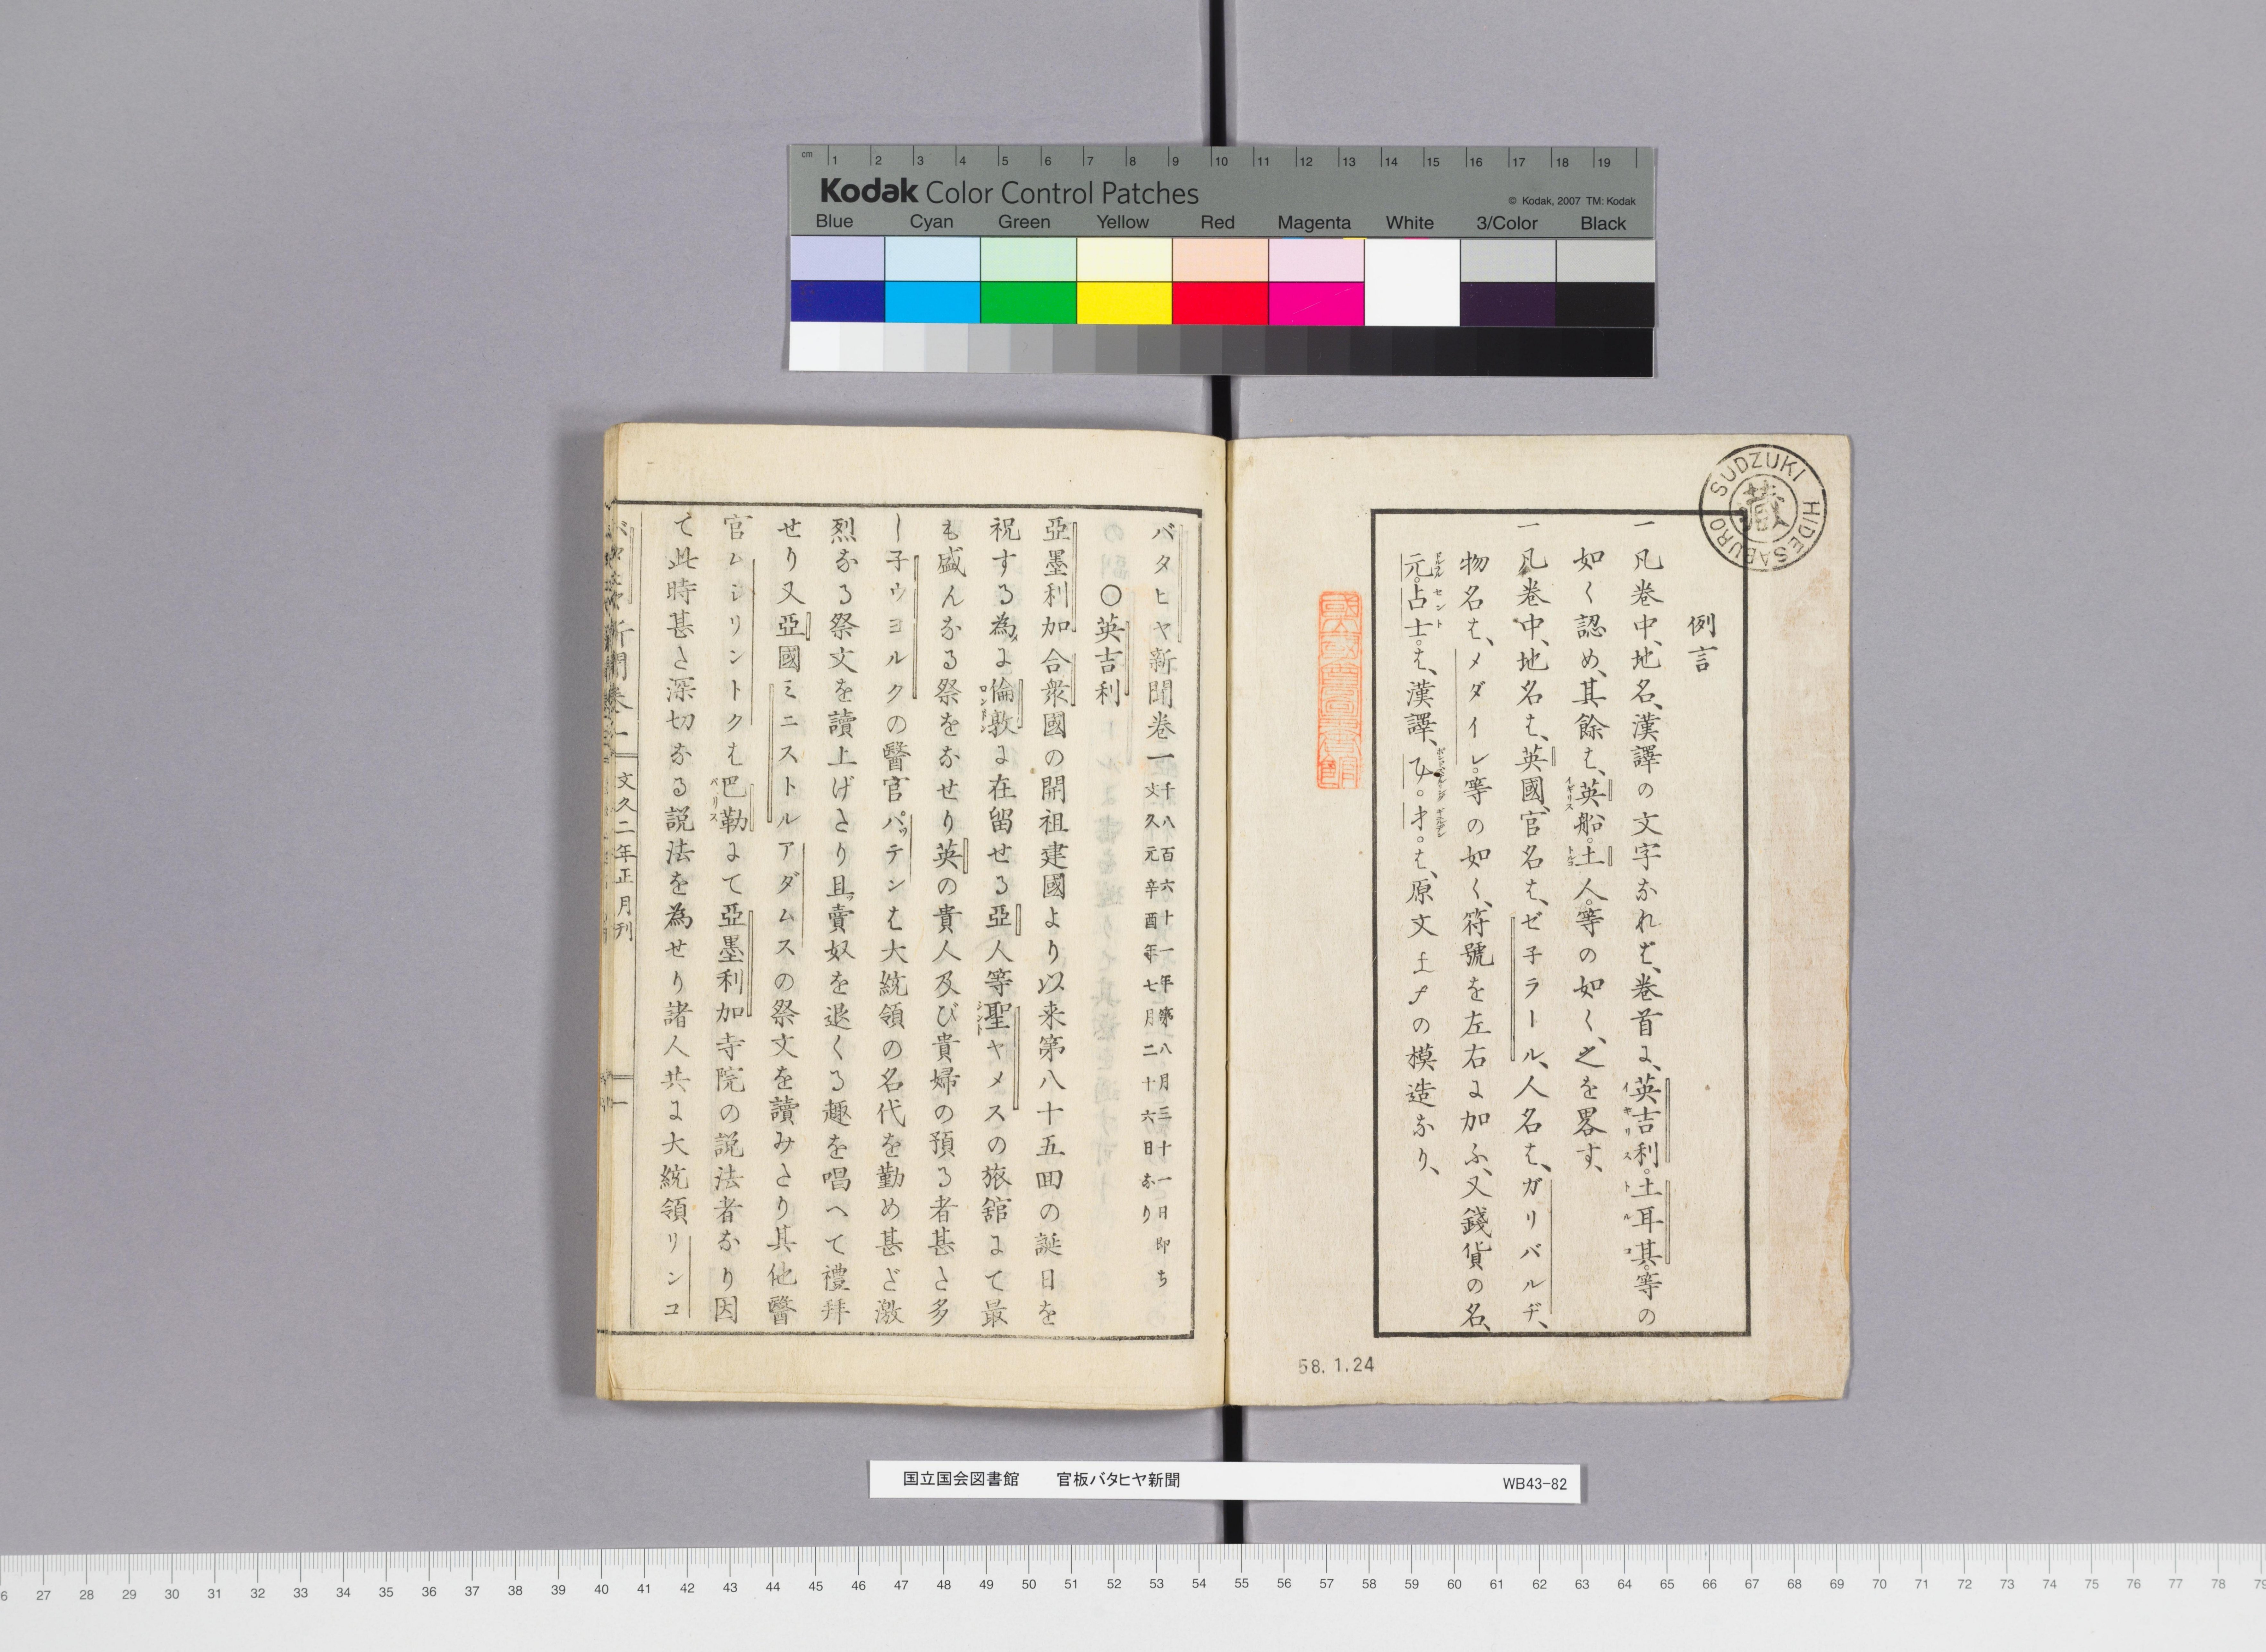 cm 1 2 3 4 5 6 7 8 9 10 11 12 13 14 15 16 17 18 19
Kodak Color Control Patches
© Kodak, 2007 TM: Kodak
Blue Cyan Green Yellow Red Magenta White 3/Color Black
SUDZUKI HIDESABURO
藏
例言
一凡巻中、地名、漢譯の文字なれば、巻首に、英吉利。土耳其。等の
イキリス トルコ
如く認め、其餘は、英船。土人。等の如く、之を畧す、
イギリス トルコ
一凡巻中、地名は、英國、官名は、ゼ子ラール、人名は、ガリバルヂ、
物名は、メダイレ。等の如く、符號を左右に加ふ、又錢貨の名、
元。占士。は、漢譯、
ドルラル セント
は、原文
の模造なり、
58.1.24
バタヒヤ新聞巻一
千八百六十一年第八月三十一日即ち
文久元辛酉年七月二十六日なり
○英吉利
亞墨利加合衆國の開祖建國より以来第八十五回の誕日を
祝する為メに倫敦に在留せる亞人等聖ヤメスの旅舘にて最
ロンドン シント
も盛んなる祭をなせり英の貴人及び貴婦の預る者甚た多
し子ウヨルクの醫官パッテンは大統領の名代を勤め甚だ激
烈なる祭文を讀上げたり且ツ賣奴を退くる趣を唱へて禮拜
せり又亞國ミニストルアダムスの祭文を讀みたり其他醫
官ムシリントクは巴勒にて亞墨利加寺院の説法者なり因
パリス
て此時甚た深切なる説法を為せり諸人共に大統領リンコ
新聞巻一
文久二年正月刊
一
国立国会図書館 官板バタヒヤ新聞 WB43-82
27 28 29 30 31 32 33 34 35 36 37 38 39 40 41 42 43 44 45 46 47 48 49 50 51 52 53 54 55 56 57 58 59 60 61 62 63 64 65 66 67 68 69 70 71 72 73 74 75 76 77 78 79